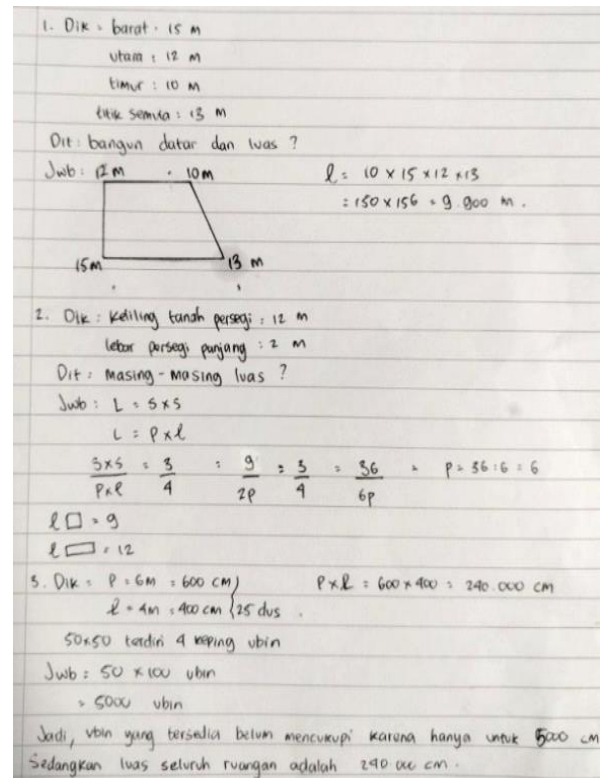 1. Dik : barat : 15 m
utara : 12 m
timur : 10 m
titik semula : 13 m
Dit : bangun datar dan luas ?
Jwb : 12 m 10 m l = 10 x 15 x 12 x 13
= 150 x 156 = 9.900 m.
15 m 13 m
2. Dik : keliling tanah persegi : 12 m
lebar persegi panjang : 2 m
Dit : masing-masing luas ?
Jwb : L = s x s
L = p x l
s x s / p x l = 3/4 = 9/2p = 3/4 = 36/6p = p = 36 : 6 = 6
l □ = 9
l ▭ = 12
3. Dik : P = 6m = 600 cm } P x l = 600 x 400 = 240.000 cm
l = 4m = 400 cm } 25 dus
50x50 terdiri 4 keping ubin
Jwb : 50 x 100 ubin
= 5000 ubin
Jadi, ubin yang tersedia belum mencukupi karena hanya untuk 5000 cm
Sedangkan luas seluruh ruangan adalah 240.000 cm.